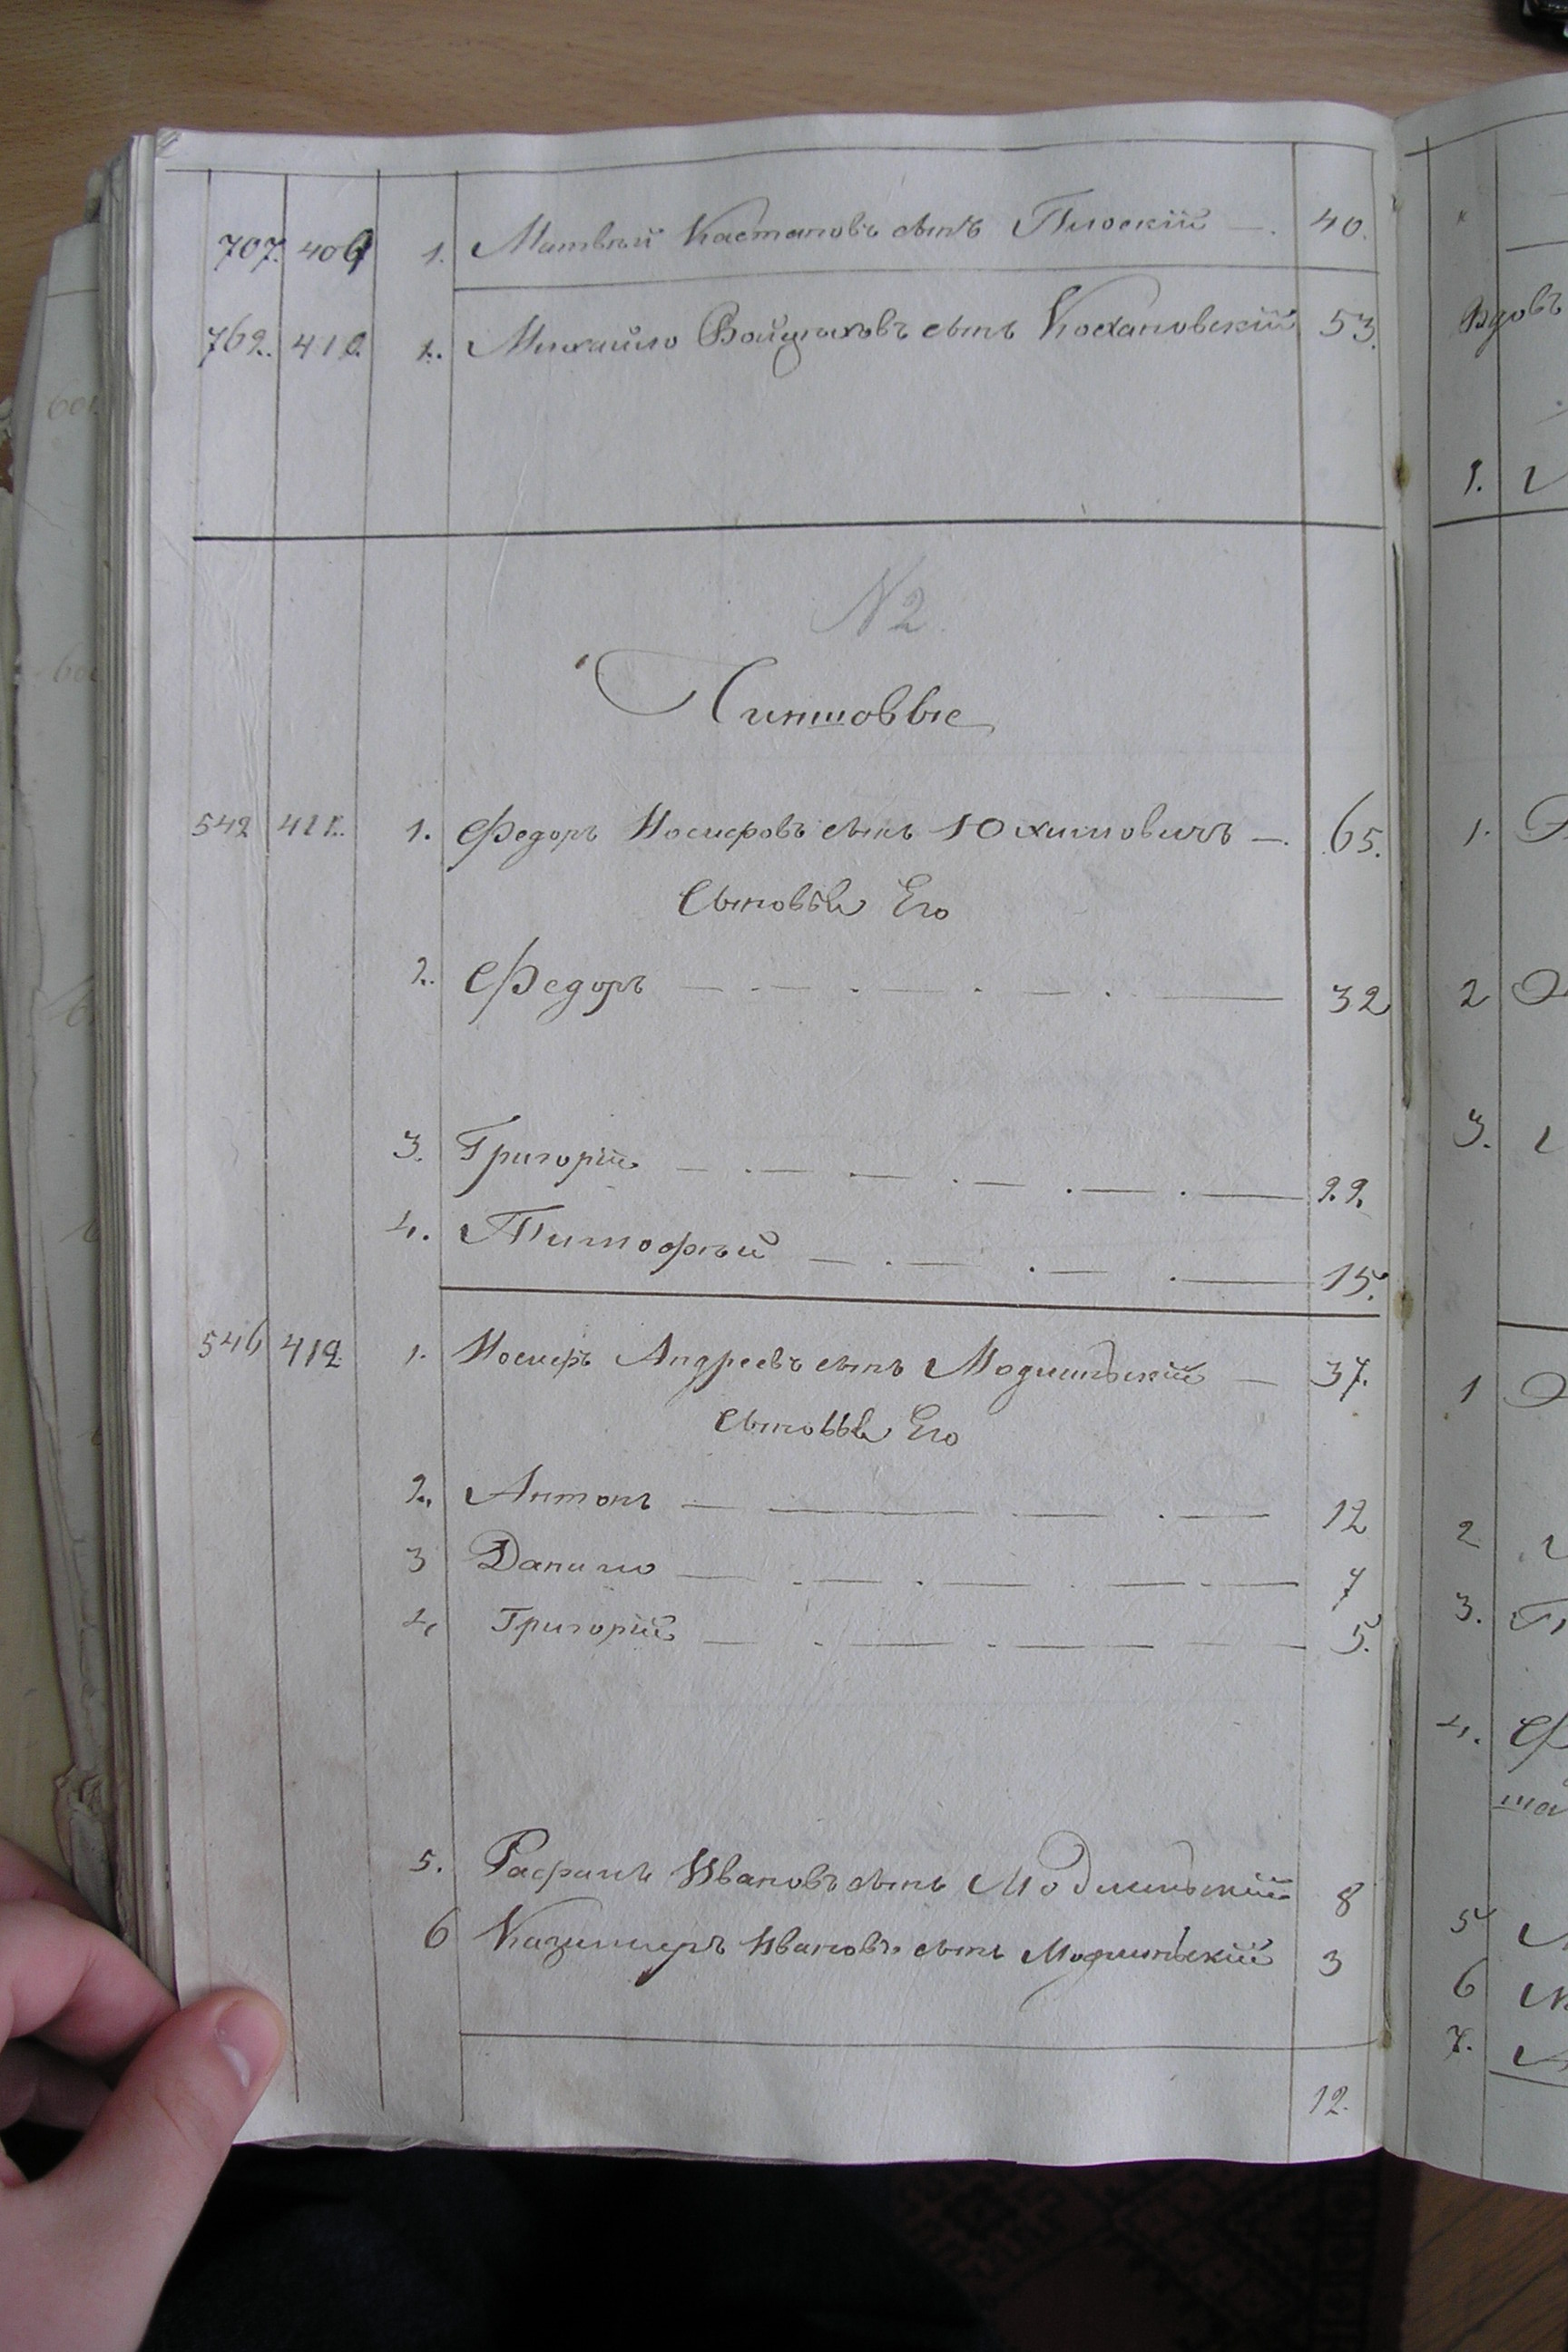 707. 409 1. Матвѣй Каетановъ сынъ Плоскій —. 40.
762. 410. 1. Михайло Войцѣховъ сынъ Кохановскій 53.
N2.
Линповые
542 411. 1. Федоръ Іосифовъ сынъ Юхимовичъ —. 65.
Сыновья Его
2. Федоръ 32
3. Григорій 22.
4. Тимофѣй 15.
546 412. 1. Іосифъ Андреевъ сынъ Модлинскій — 37.
Сыновья Его
2. Антонъ 12
3 Данило 7
4, Григорій 5.
5. Рафаилъ Ивановъ сынъ Модлинскій 8
6 Казимиръ Ивановъ сынъ Модлинскій 3
12.
Вдовъ
1.
1.
2
3.
1
2
3.
4.
5
6
7.